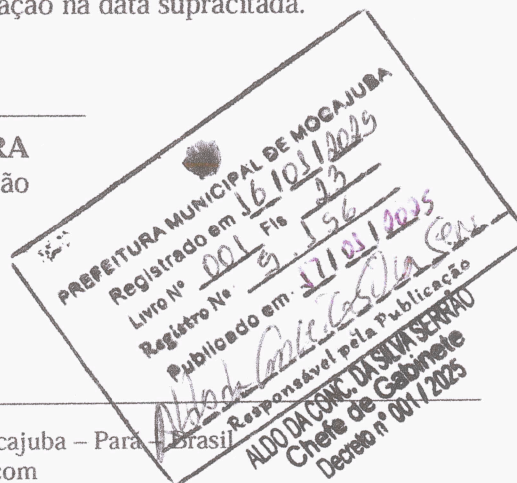 ação na data supracitada.
RA
ão
PREFEITURA MUNICIPAL DE MOCAJUBA
Registrado em 16/01/2025
Livro Nº 001 Fls 23
Registro Nº 9.156
Publicado em: 17/01/2025
Responsável pela Publicação
ALDO DA CONC. DA SILVA SERRÃO
Chefe de Gabinete
Decreto nº 001/2025
cajuba – Pará – Brasil
com